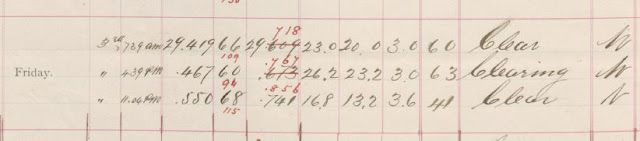 718
3rd 7.39 am 29.419 66 29.609 23.0 20.0 3.0 60 Clear N
109 .767
Friday. " 4.39 PM .467 60 .673 26.2 23.2 3.0 63 Clearing N
94 .856
" 11.06 PM .550 68 .741 16.8 13.2 3.6 41 Clear N
115